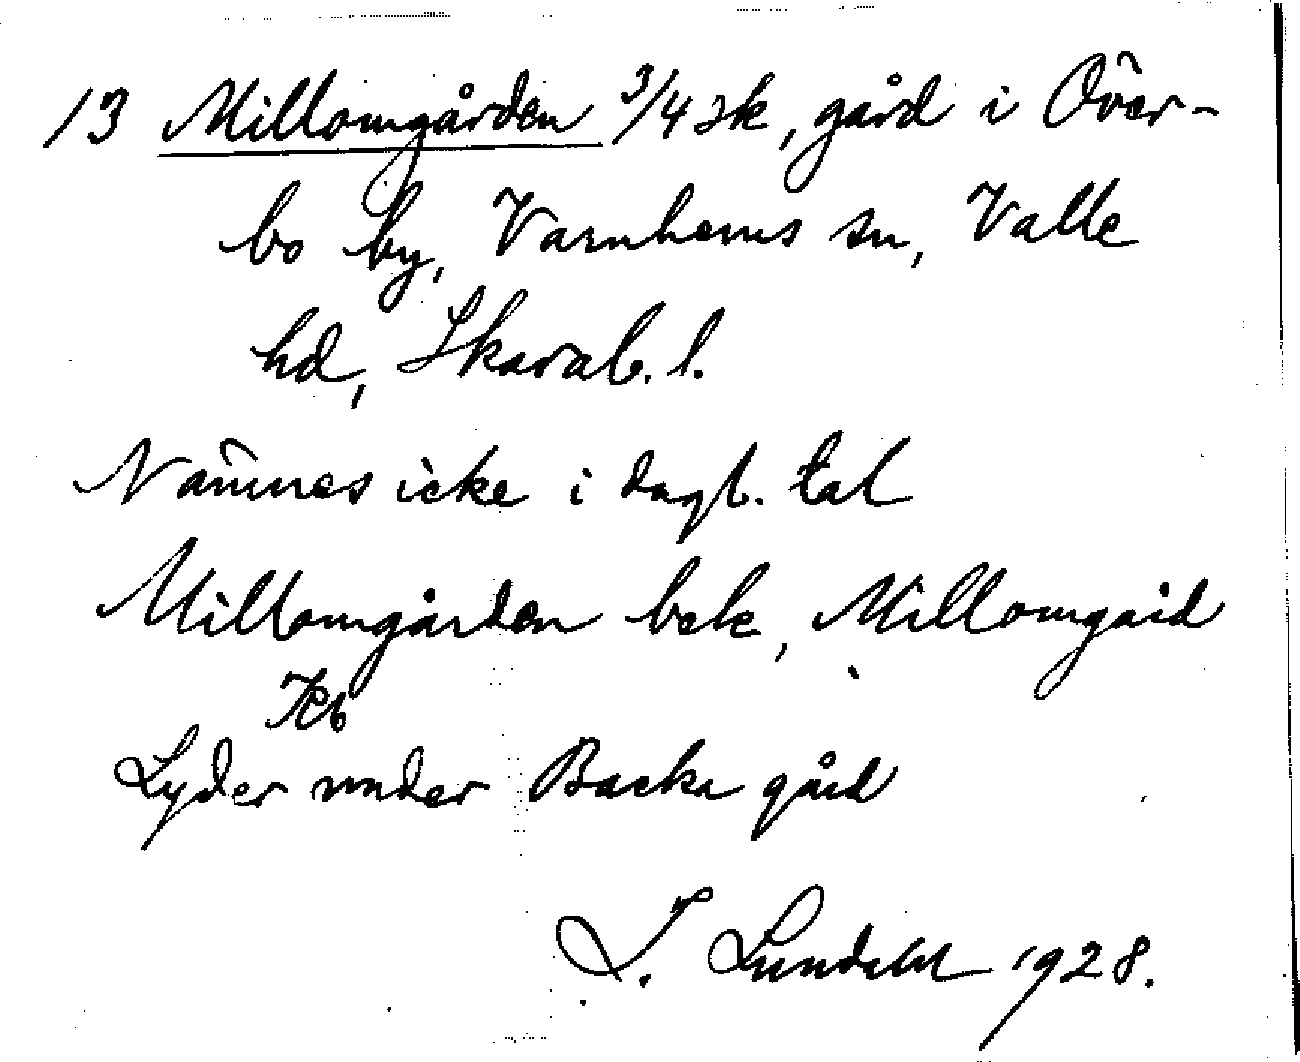 13 Millomgården 3/4 sk, gård i Över-
bo by, Varnhems sn, Valle
hd, Skarab. l.
Nämnes icke i dagl. tal
Millomgården bek, Millomgård
Jeb
Lyder under Backa gård
I. Lundahl 1928.